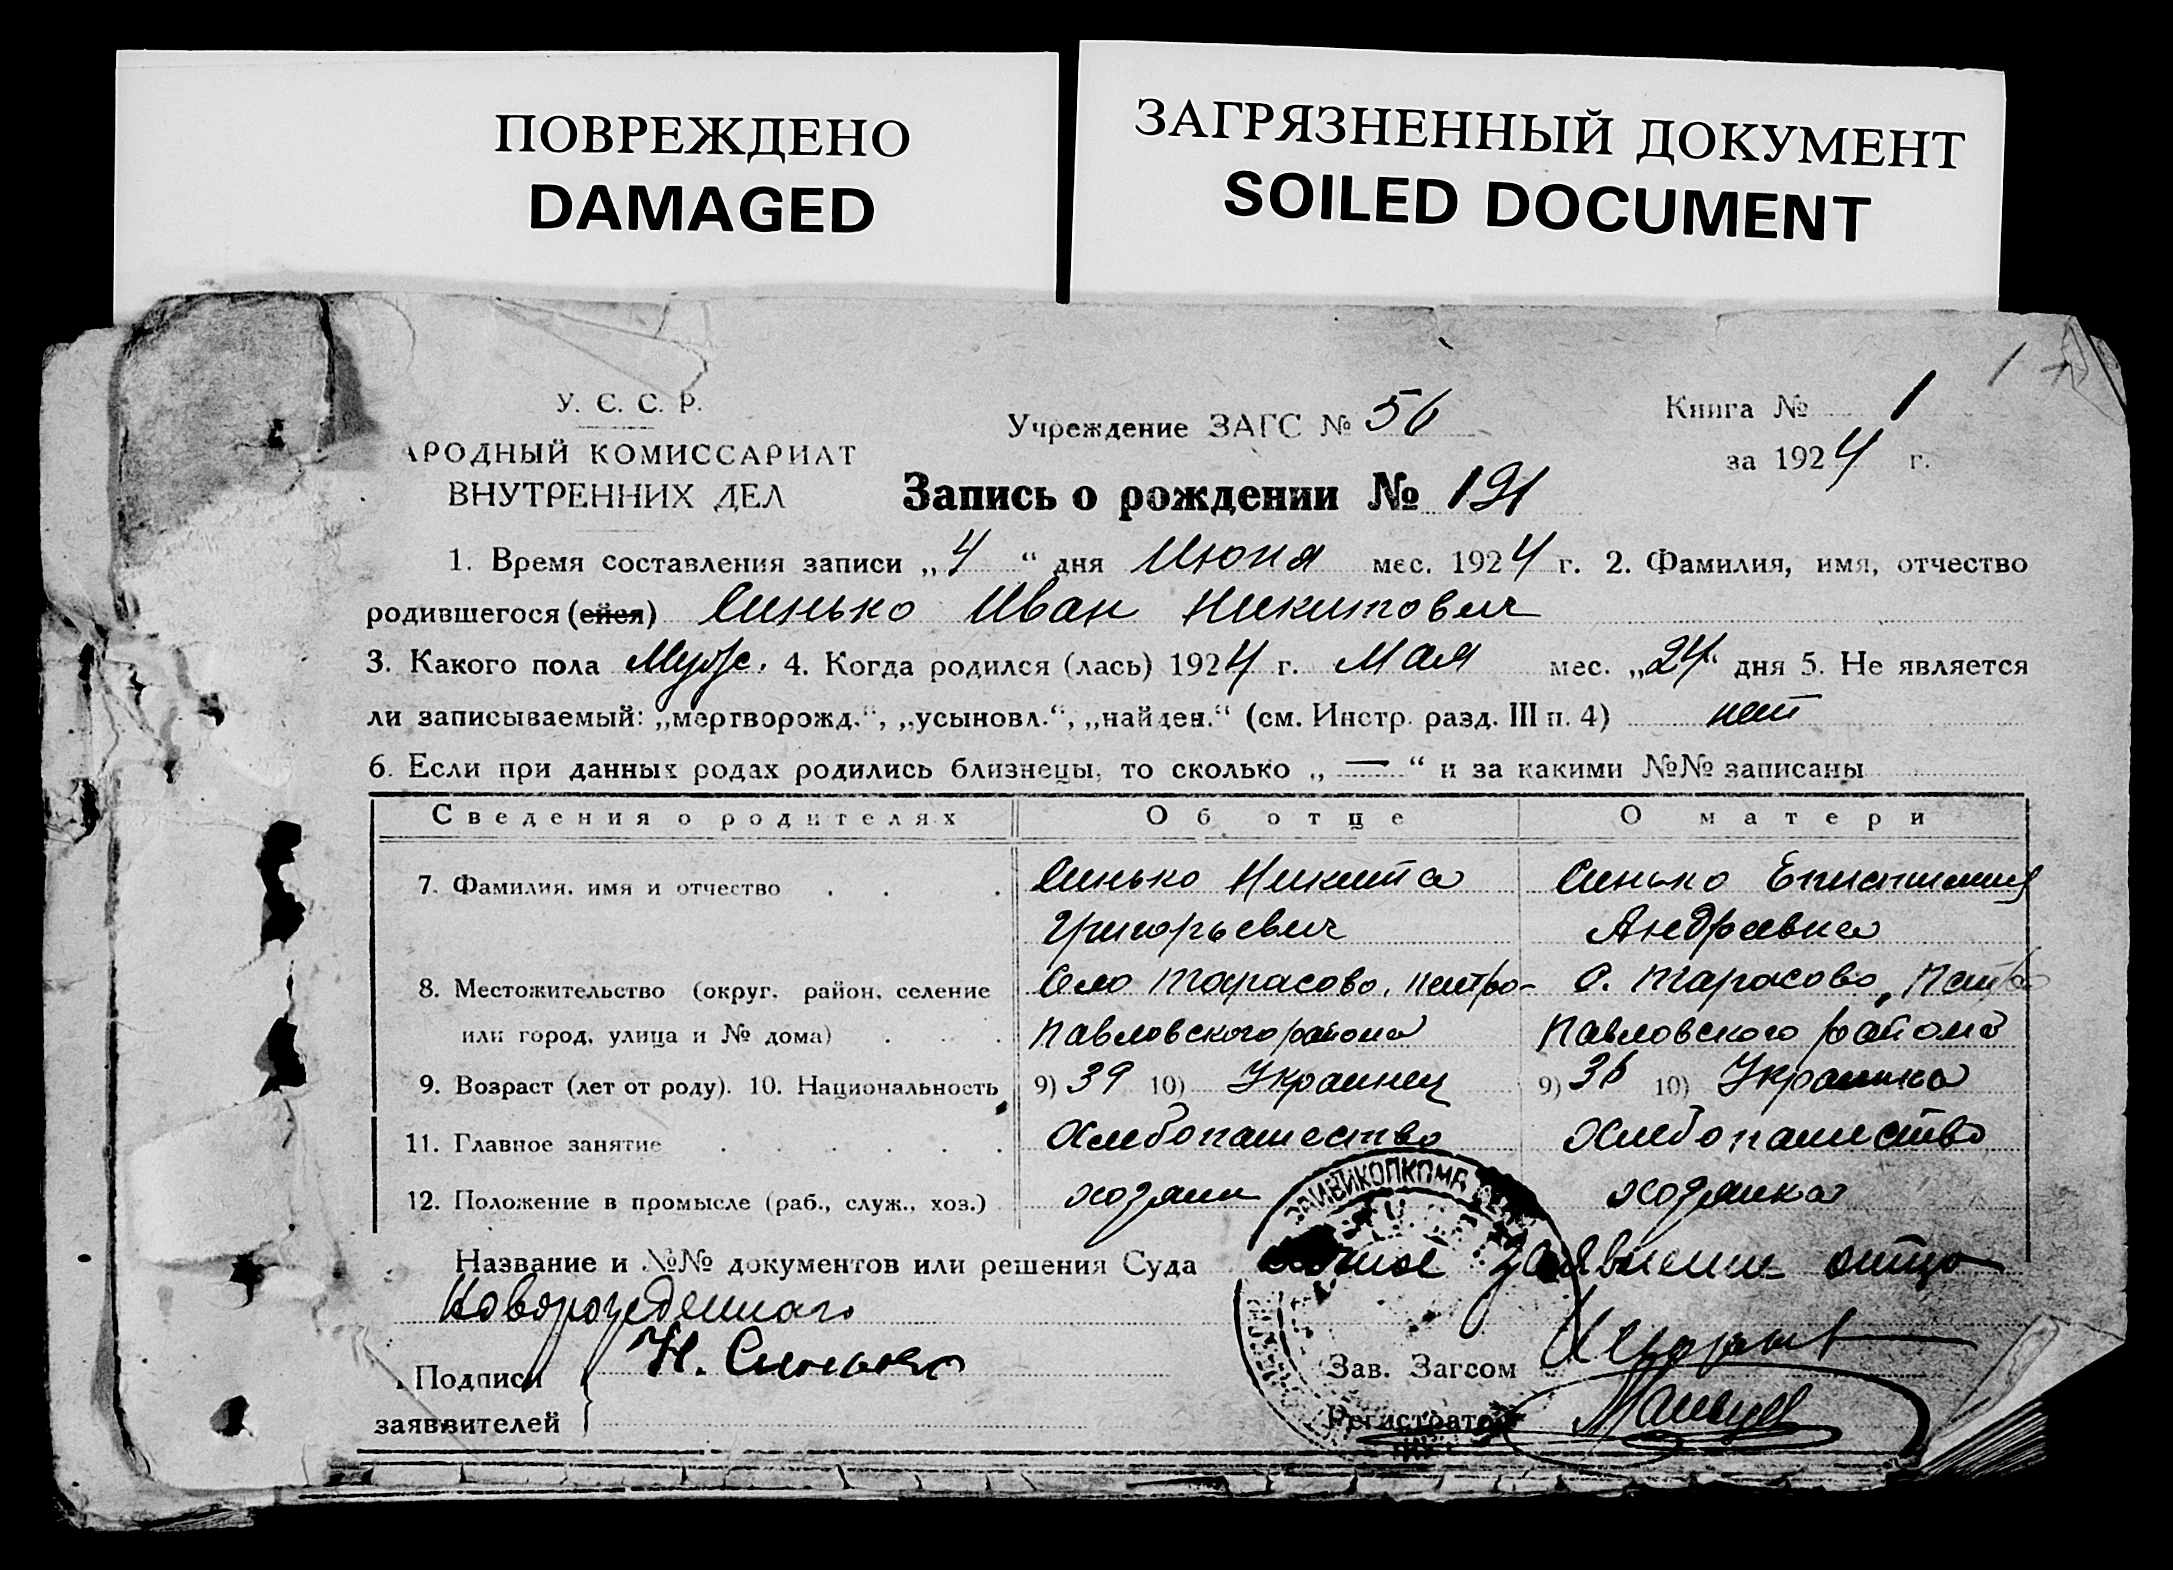 ПОВРЕЖДЕНО
DAMAGED
ЗАГРЯЗНЕННЫЙ ДОКУМЕНТ
SOILED DOCUMENT
1
У. С. С. Р.
АРОДНЫЙ КОМИССАРИАТ
ВНУТРЕННИХ ДЕЛ
Учреждение ЗАГС № 56
Книга № 1
за 1924 г.
Запись о рождении № 191
1. Время составления записи „4“ дня Июня мес. 1924 г. 2. Фамилия, имя, отчество
родившегося (ейся) Синько Иван Никитович
3. Какого пола Муж. 4. Когда родился (лась) 1924 г. Мая мес. „24“ дня 5. Не является
ли записываемый: „мертворожд.“, „усыновл.“, „найден.“ (см. Инстр. разд. III п. 4) нет
6. Если при данных родах родились близнецы, то сколько „—“ и за какими №№ записаны
Сведения о родителях Об отце О матери
7. Фамилия, имя и отчество . . . Синько Никита Синько Епистимия
Григорьевич Андреевна
8. Местожительство (округ, район, селение Село Тарасово, Петро- С. Тарасово, Петро
или город, улица и № дома) . . . Павловского района Павловского района
9. Возраст (лет от роду). 10. Национальность 9) 39 10) Украинец 9) 36 10) Украинка
11. Главное занятие . . . . . . Хлебопашество Хлебопашество
12. Положение в промысле (раб., служ., хоз.) хозяин хозяйка
Название и №№ документов или решения Суда Личное заявление отца
Новорожденного
Подписи Н. Синько
заяввителей
Зав. Загсом
Регистратор